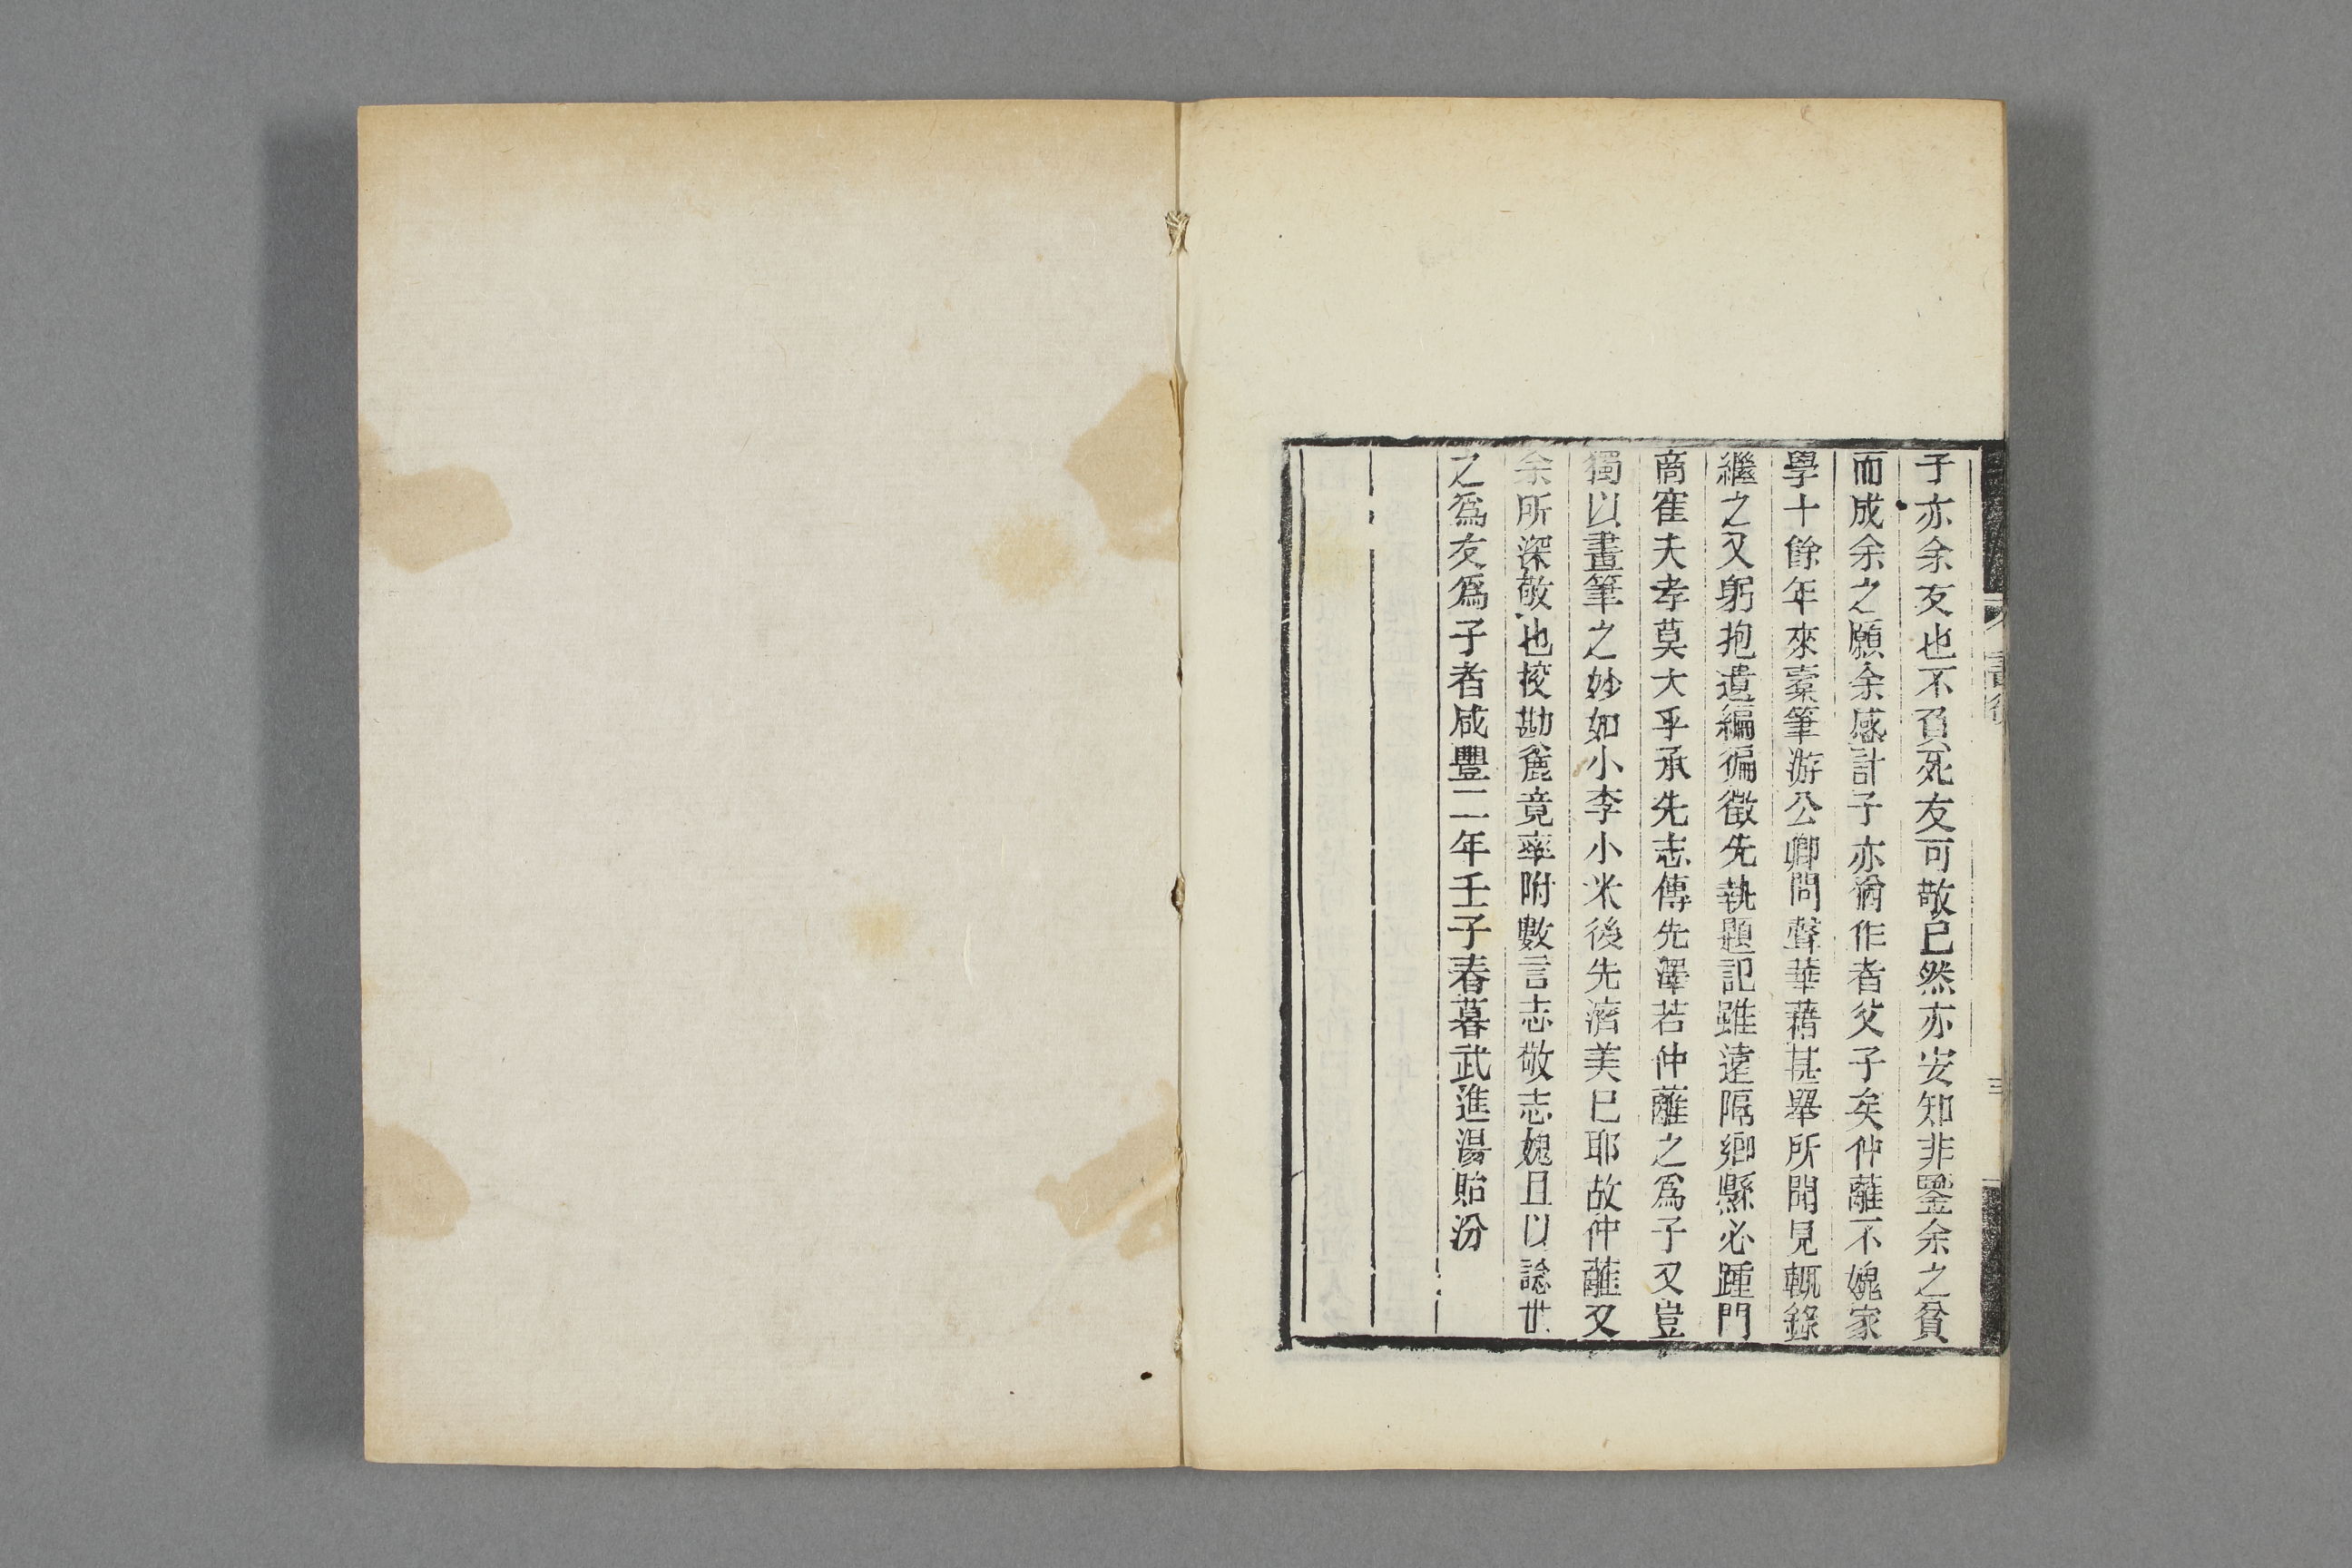 子亦余友也不負死友可敬已然亦安知非鑒余之貧
而成余之願余感計子亦猶作者父子矣仲蘺不媿家
學十餘年來橐筆游公卿間聲華藉甚舉所聞見輒錄
繼之又躬抱遺編徧徵先執題記雖遠隔鄉縣必踵門
商寉夫孝莫大乎承先志傳先澤若仲蘺之爲子又豈
獨以畫筆之妙如小李小米後先濟美已耶故仲蘺又
余所深敬也挍勘旣竟率附數言志敬志媿且以諗世
之爲友爲子者咸豐二年壬子春暮武進湯貽汾
書後
三